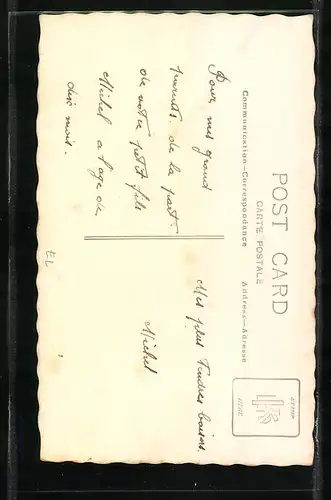 POST CARD
CARTE POSTALE
Communication—Correspondance
Address—Adresse
STAMP
HERE
Pour mes grand
parents. de la part
de votre petit fils
Michel a l'age de
dix mois.
Mes plus tendres baisers.
Michel
EL